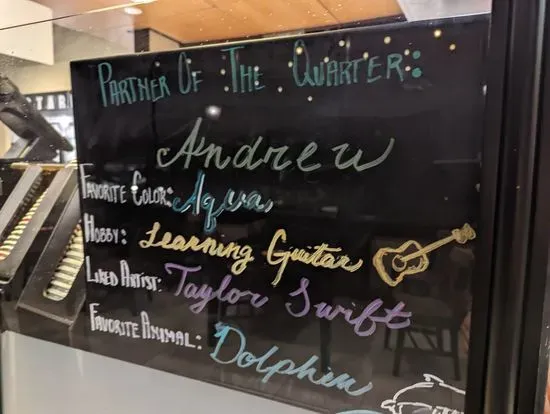 Partner Of The Quarter:
Andrew
Favorite Color: Aqua
Hobby: Learning Guitar
Liked Artist: Taylor Swift
Favorite Animal: Dolphin